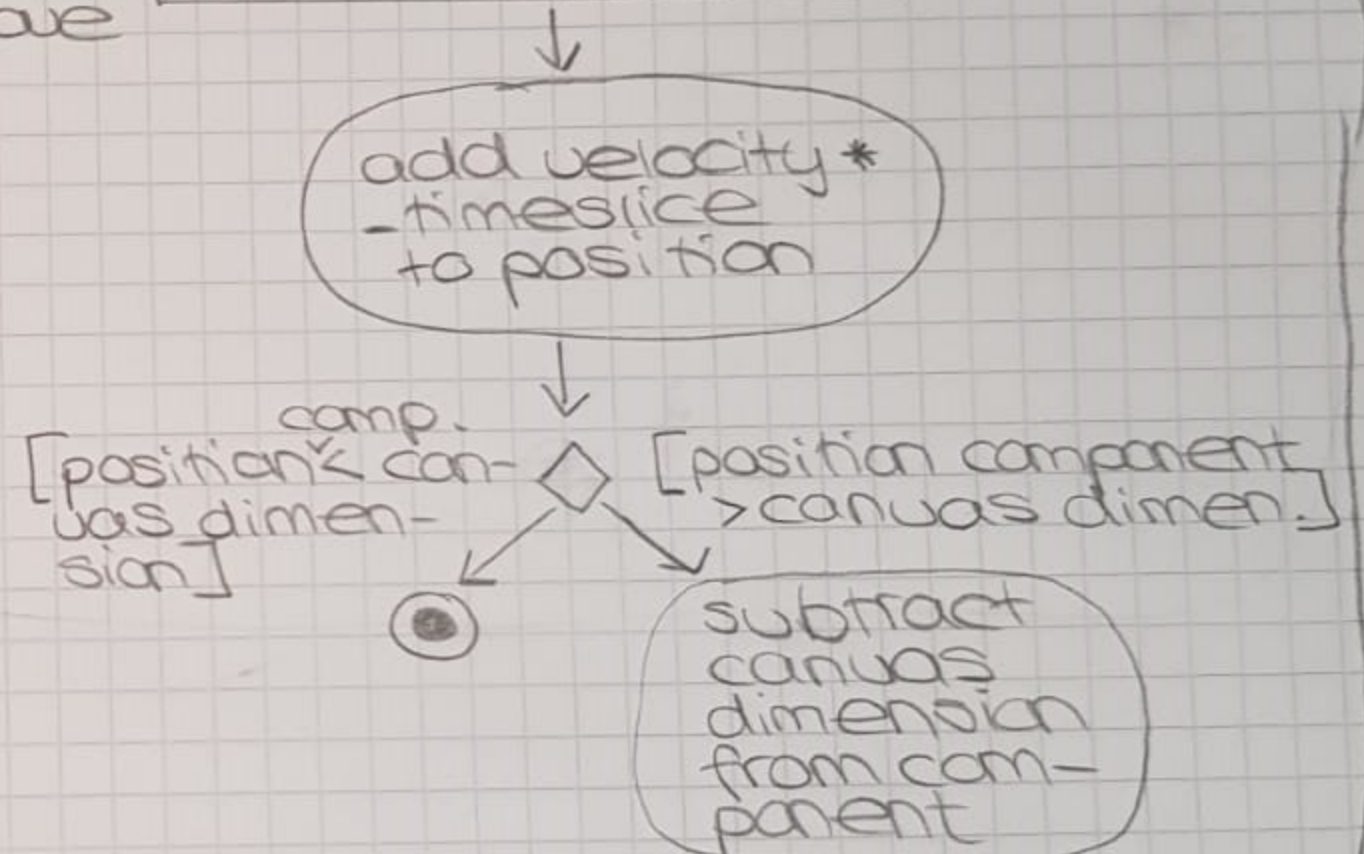 add velocity *
_timeslice
to position
comp.
[position < can-
vas dimen-
sion]
[position component
>canvas dimen.]
subtract
canvas
dimension
from com-
ponent